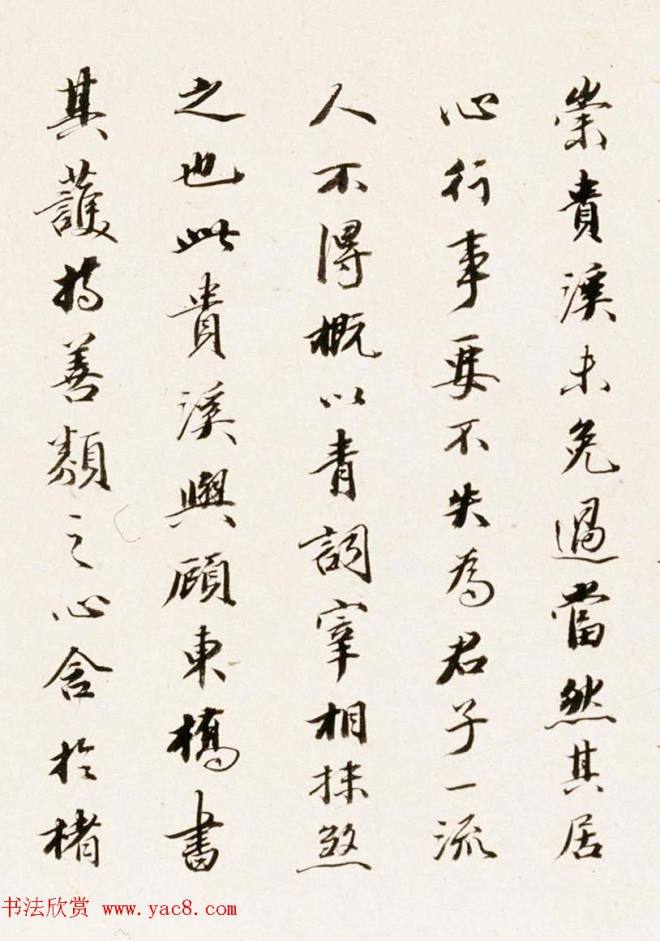 崇貴溪未免過當然其居
心行事要不失為君子一流
人不得概以青詞宰相抹煞
之也此貴溪與顧東橋書
其護持善類之心含於楮
书法欣赏 www.yac8.com